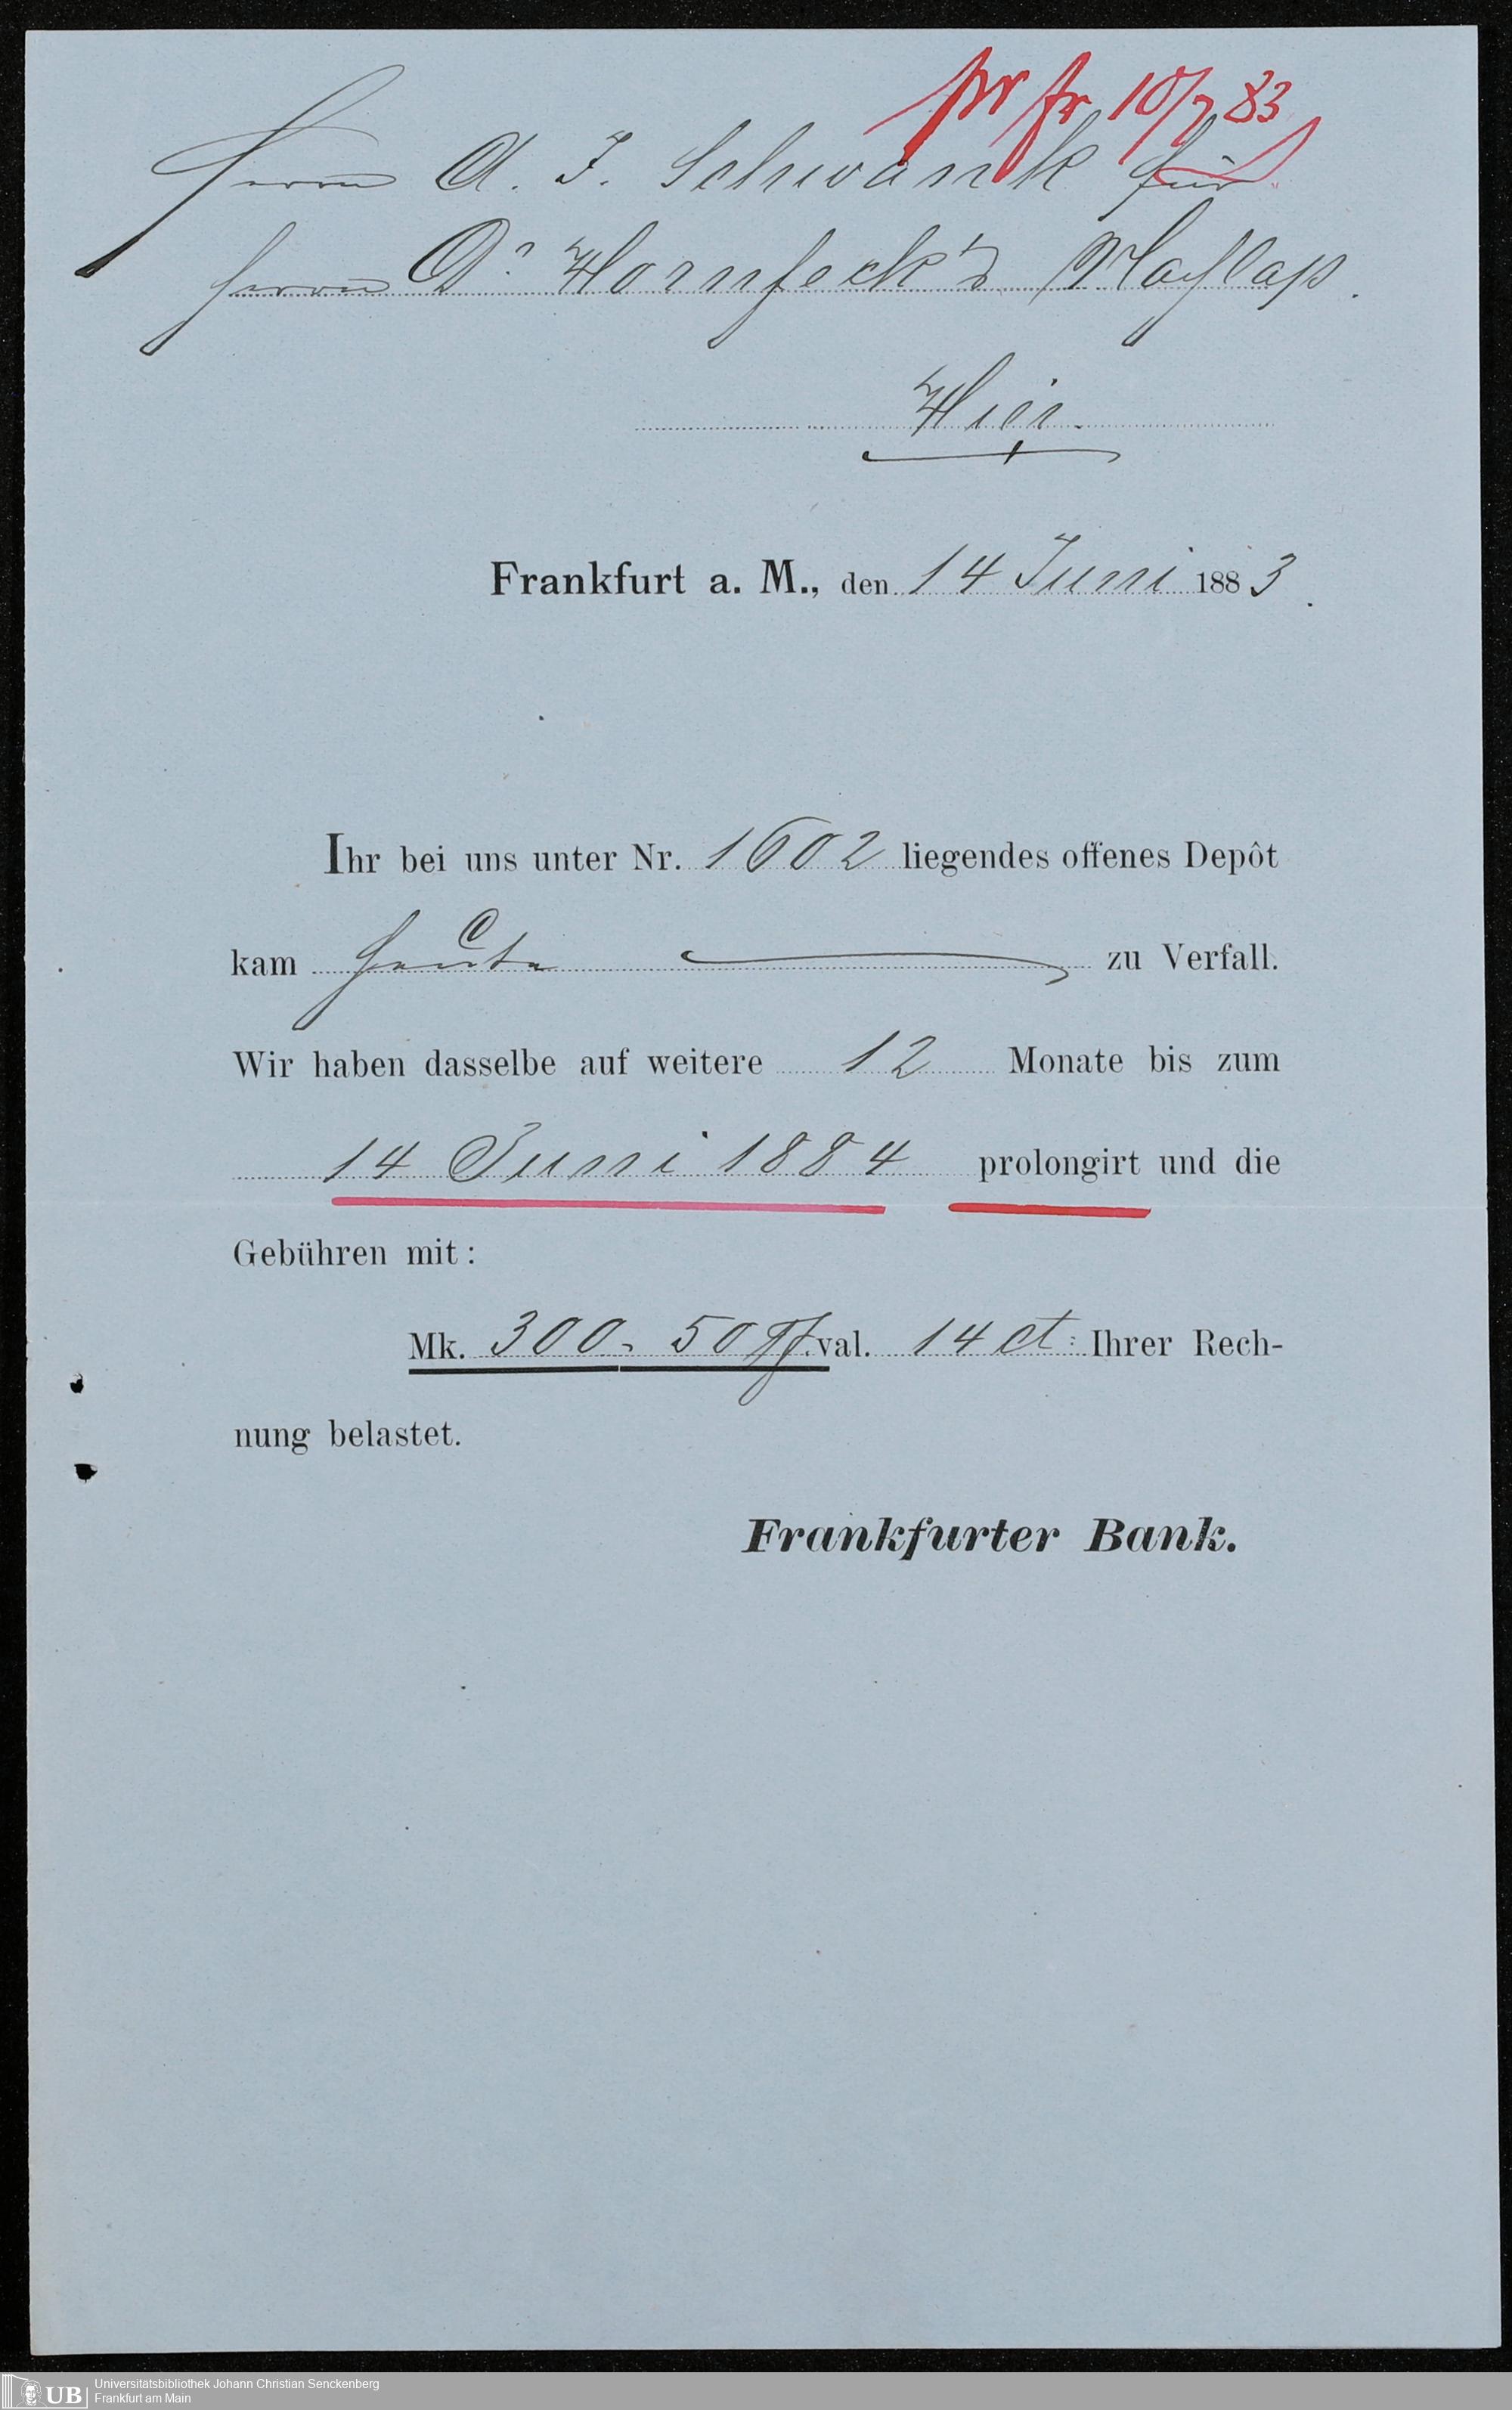 pr fr 10/7 83
Herrn A. J. Schwanck für
Herrn Dr Hornfeck's Nachlass.
Hier.
Frankfurt a. M., den 14 Juni 1883.
Ihr bei uns unter Nr. 1602 liegendes offenes Depôt
kam heute zu Verfall.
Wir haben dasselbe auf weitere 12 Monate bis zum
14 Juni 1884 prolongirt und die
Gebühren mit:
Mk. 300. 50 Pf. val. 14 ct: Ihrer Rech-
nung belastet.
Frankfurter Bank.
UB
Universitätsbibliothek Johann Christian Senckenberg
Frankfurt am Main